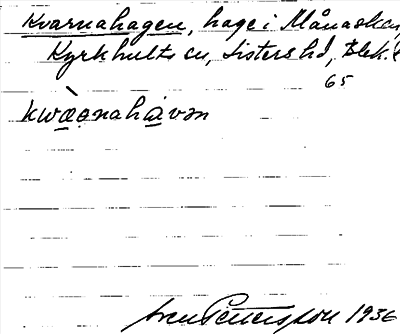 Kvarnahagen, hage i Månaskav,
Kyrkhults sn, Listers hd, Blek. l
65
kwàanahàvən
Sven Pettersson 1936